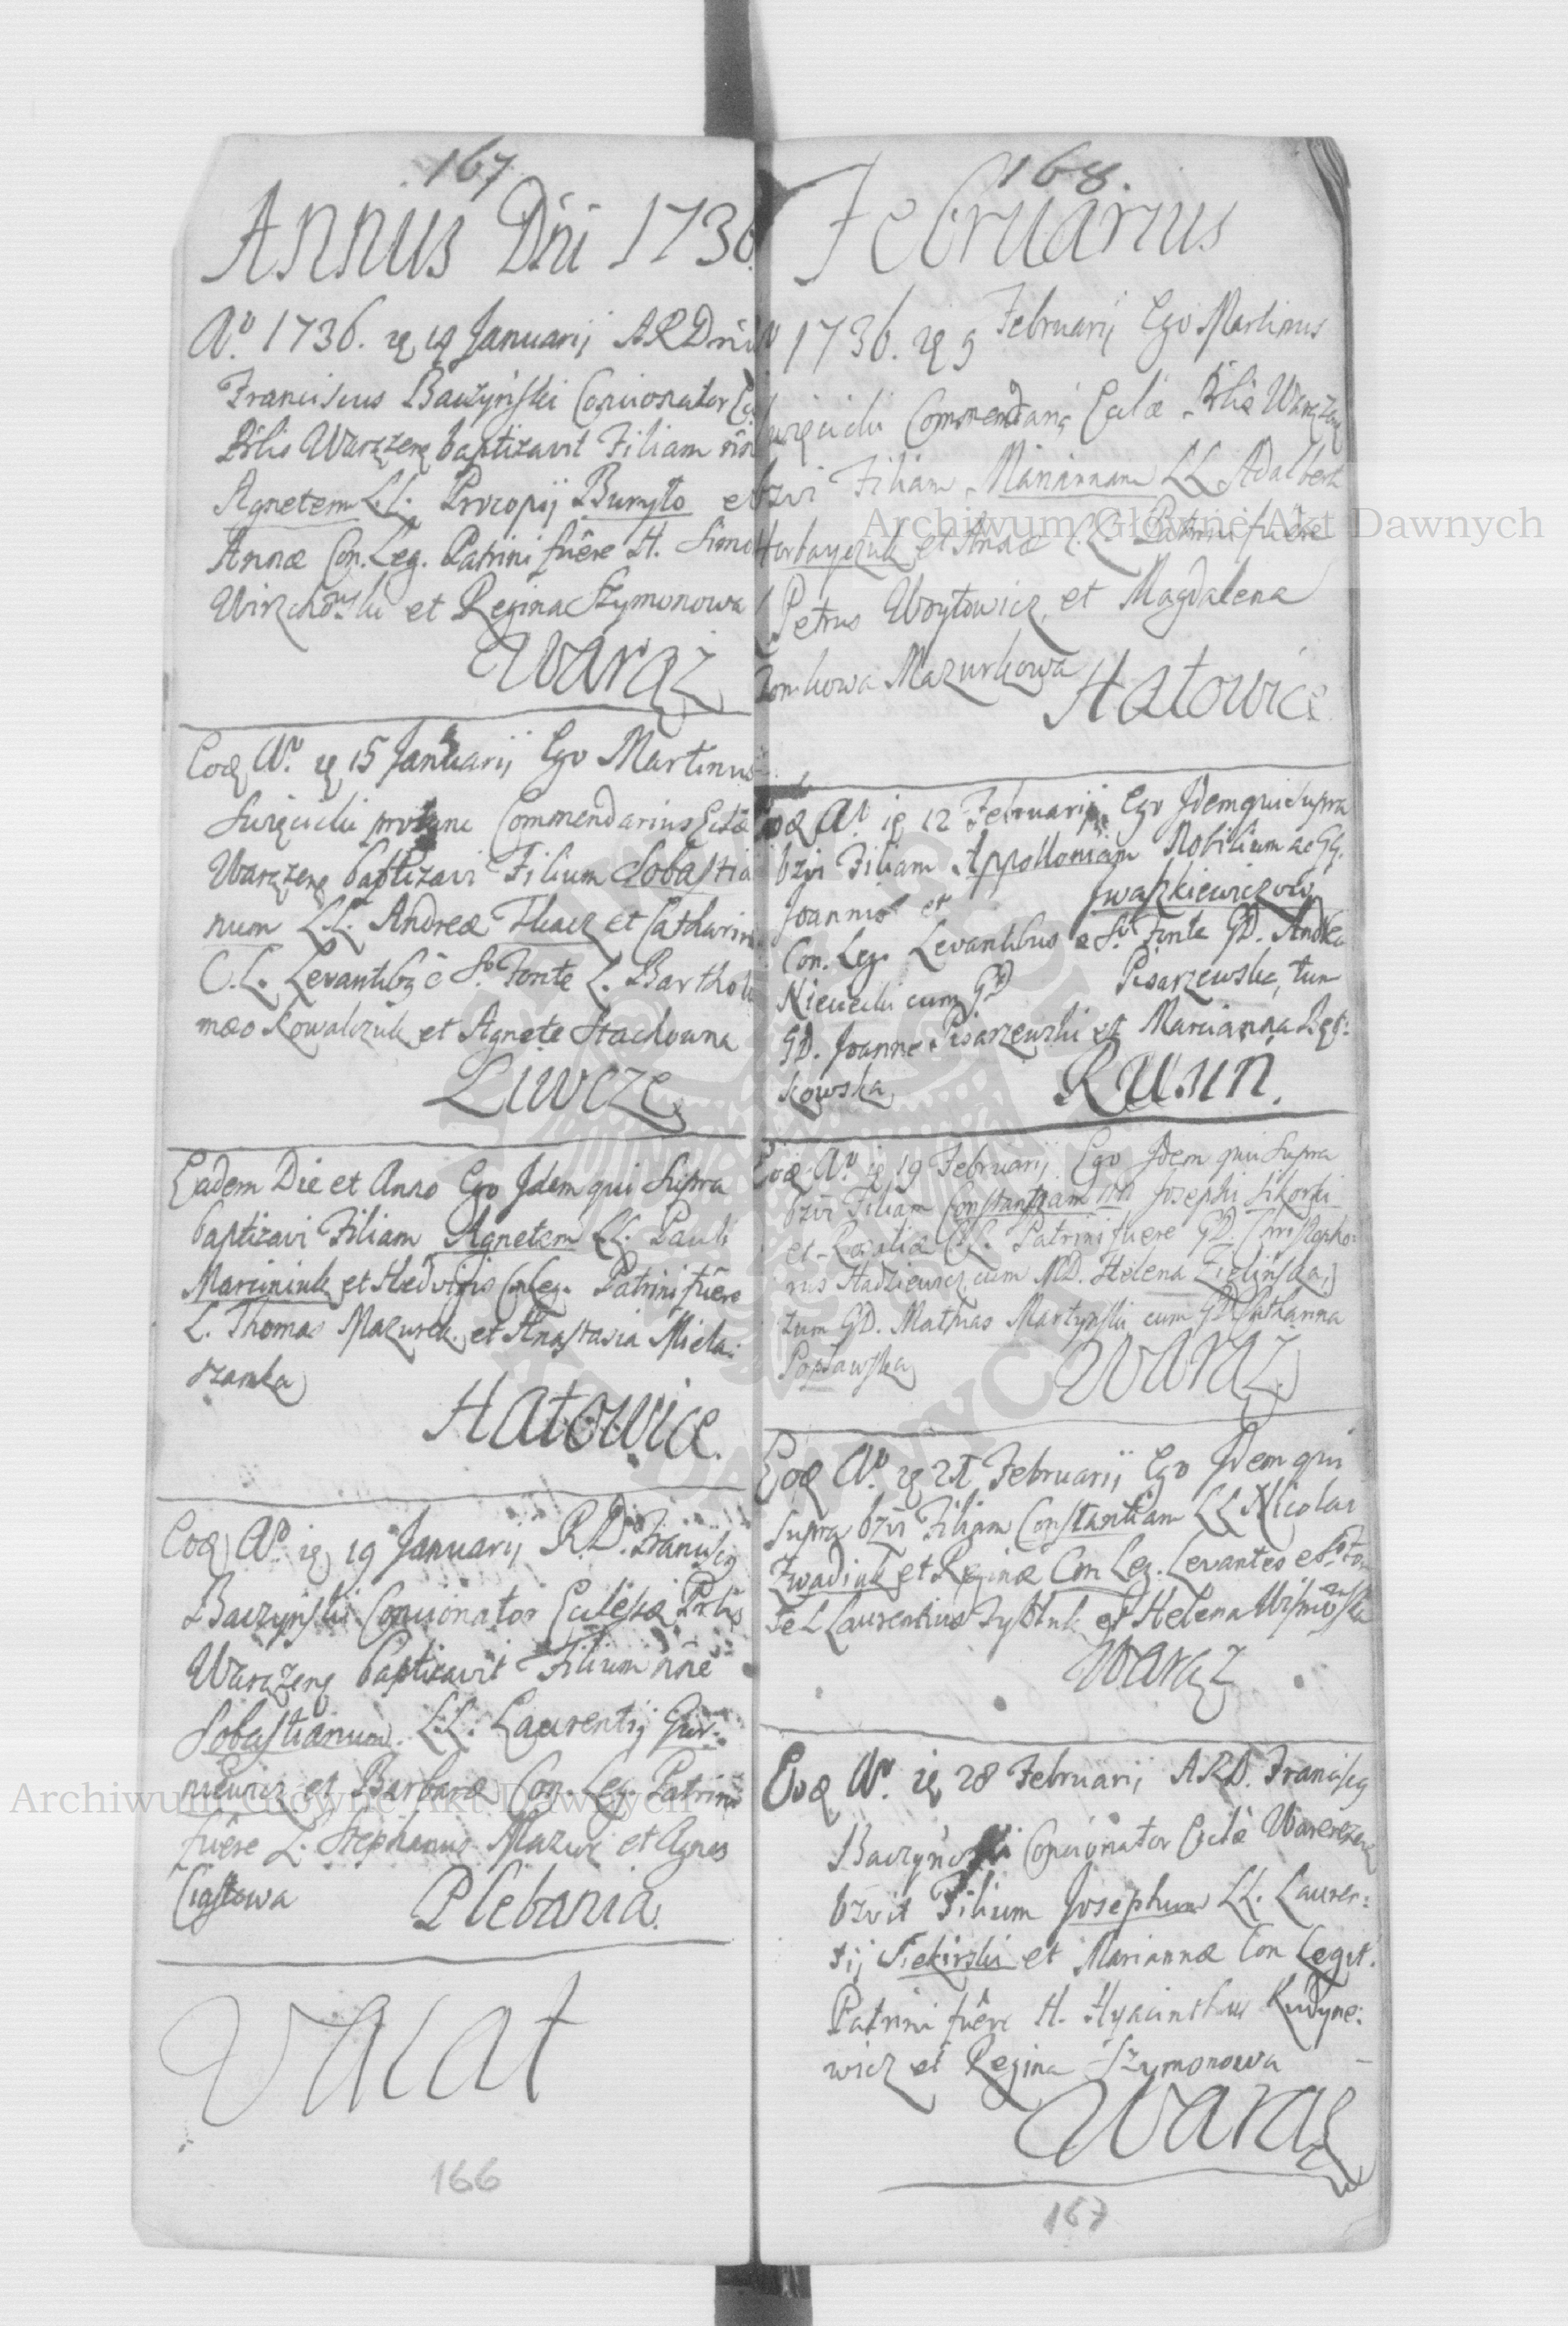 167
Annus Dni 1736
Aº. 1736. 19 Januarij ARDnus
Franciscus Baczyński Concionator
Prlis Warązens baptizavit Filiam
Agnetem LL. Procopij Buryło et
Annæ Con. Leg. Patrini fuêre H. Simo
et Regina Szymonowa
Warąz
Eod Aº. 15 Januarij Ego Martinus
Commendarius Eclæ
Warązens baptizavi Filium Sobastia
num LL. Andreæ Tkacz et Catharin
C. L. Levantibz è Sº. Fonte L. Bartholo
mæo Kowalczuk et Agnete Stachowna
Liwcze
Eadem Die et Anno Ego Idem qui Supra
baptizavi Filiam Agnetem LL. Pauli
Marciniuk et Hedvigis Con Leg. Patrini fuêre
L. Thomas Mazurek et Anastasia Micha:
szanka
Hatowice.
Eod Aº. 19 Januarij R.D. Francisq
Baczyński Concionator Eclesæ Prlis
Warązens baptizavit Filium nõe
Sobastianum. LL. Laurentij Gur:
niewicz et Barbaræ Con. Leg. Patrini
fuêre L. Stephanus Mazur et Agnes
Ciastowa
Plebania.
Vacat
166
168.
Februarius
1736. 9 Februarij Ego Martinus
Commendariq Eclæ Prlis Warązen
bzvi Filiam Mariannam LL Adalberti
et Annæ C.L. Patrini fuêre
Petrus Woytowicz et Magdalena
Mazurkowa
Hatowice
Eod Aº. 12 Februarij Ego Idem qui Supra
bzvi Filiam Appolloniam Nobilium ac GG.
Joannis et Iwaszkiewiczow
Con. Leg. Levantibus e Sº. Fonte GD. Andrea
Niciecki cum GD Pisarzewska, tum
GD. Joanne Pisarzewski et Marcianna
kowska
Rusin.
Eod Aº. 19 Februarij Ego Idem qui Supra
bzvi Filiam Constantiam Josephi Sikorski
et Rosaliæ C.L. Patrini fuere GD. Christopho:
rus cum MD. Helena Zielińska,
tum GD. Mathias Martyński cum GD
Popławska
Waraz
Eod Aº. 21 Februarij Ego Idem qui
Supra bzvi Filiam Constantiam LL Nicolai
Zwadiuk et Reginæ Con Leg. Levantes e Sº Fon
te L Laurentius et Helena
Warąz
Eod Aº. 28 Februarij ARD. Francisq
Baczyński Concionator Eclæ
bzvit Filium Josephum LL. Lauren:
tij Siekirski et Mariannæ Con Legit.
Patrini fuêre H. Hyacinthus Kudyne:
wicz et Regina Szymonowa
Warąz
167
Archiwum Główne Akt Dawnych
Archiwum Główne Akt Dawnych